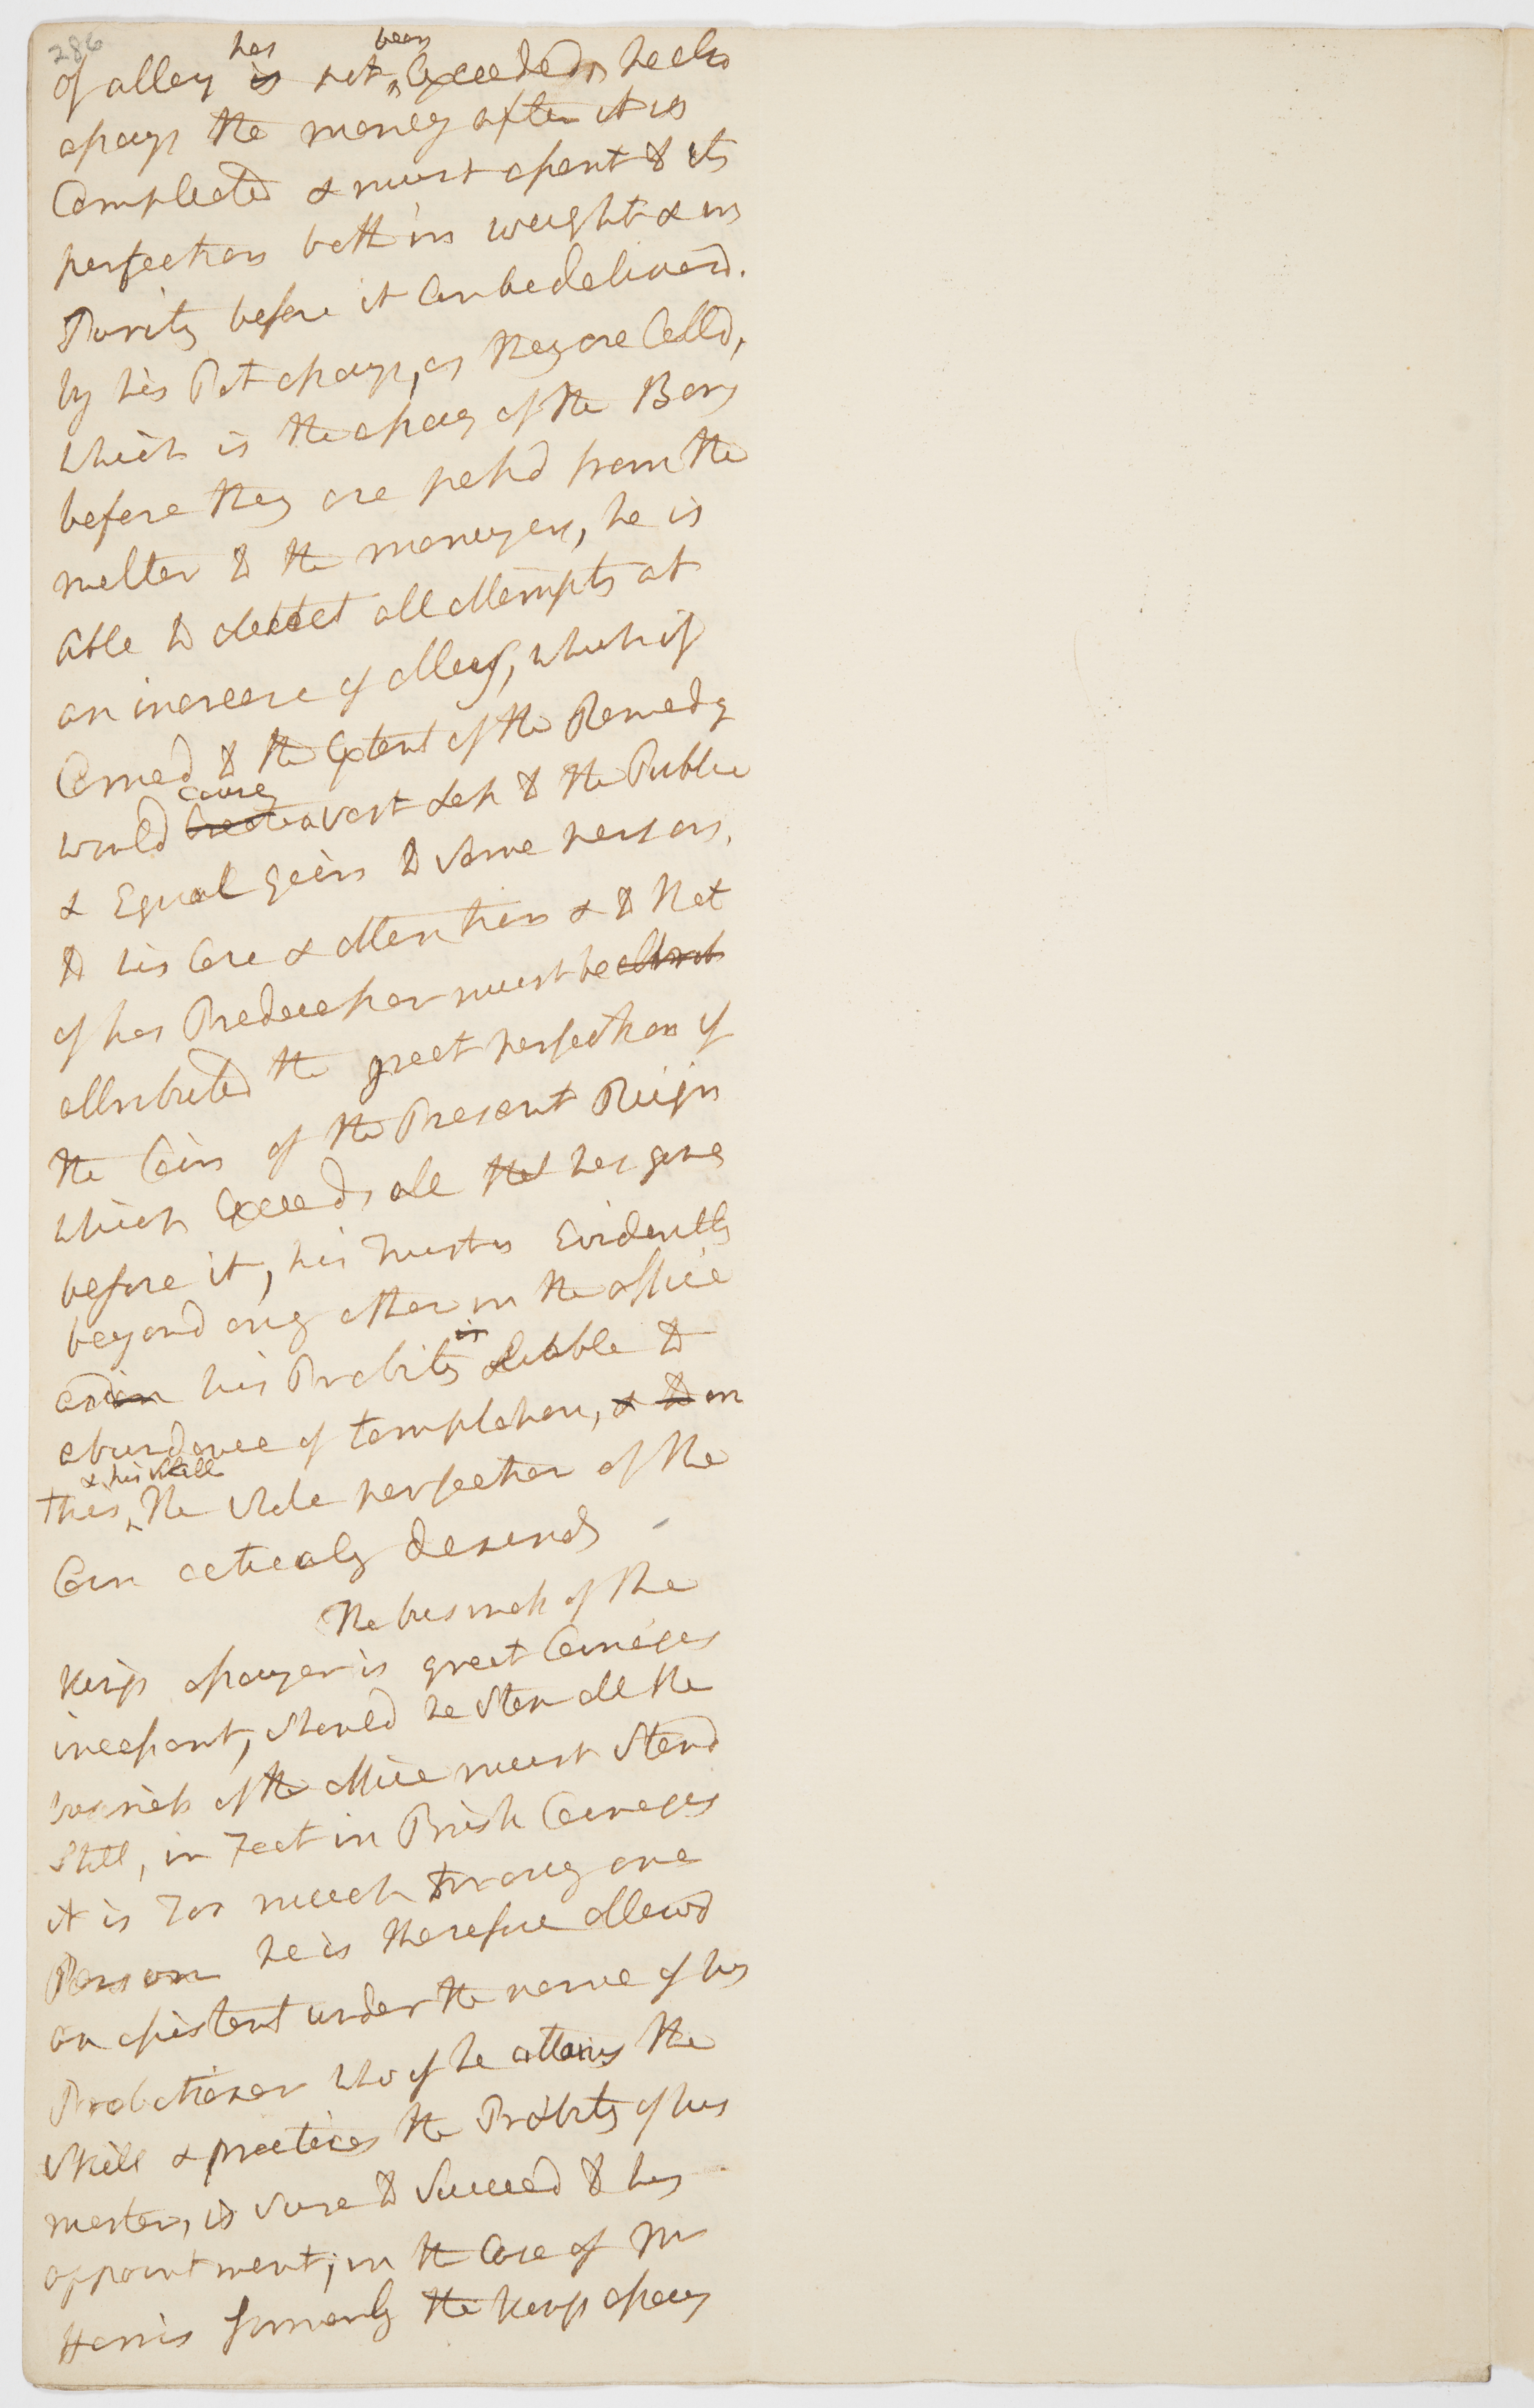 286
of alloy is has not been Exceeded, he also
assays the money after it is
Compleated & must assent to its
perfection both in weight & in
Purity before it Can be deliverd.
by his Pot assays, as they are Calld,
which is the assay of the Bars
before they are passd from the
melter to the moneyers, he is
able to detect all attempts at
an increase of alloy, which if
Carried to the Extent of the Remedy
would Create cause a vast Loss to the Public
& Equal gain to some persons.
to his Care & attention & to that
of his Predecessor must be attrib
attributed the great perfection of
the Coin of the Present Reign
which Exceeds all that has gone
before it, his trust is Evidently
beyond any other in the office
and in his Probity is Liable to
abundance of temptation, & to on
this & his skill the sole perfection of the
Coin actualy depends
The business of the
Kings assayer is great Coinages
incessant, should he stop all the
business of the office must stand
still, in fact in Brisk Coinages
it is too much for any one
Person he is therefore allowd
an assistant under the name of his
Probationer who if he attains the
skill & practices the Probity of his
master, is sure to Succeed to his
appointment, in the Case of Mr
Harris formerly the Kings assay